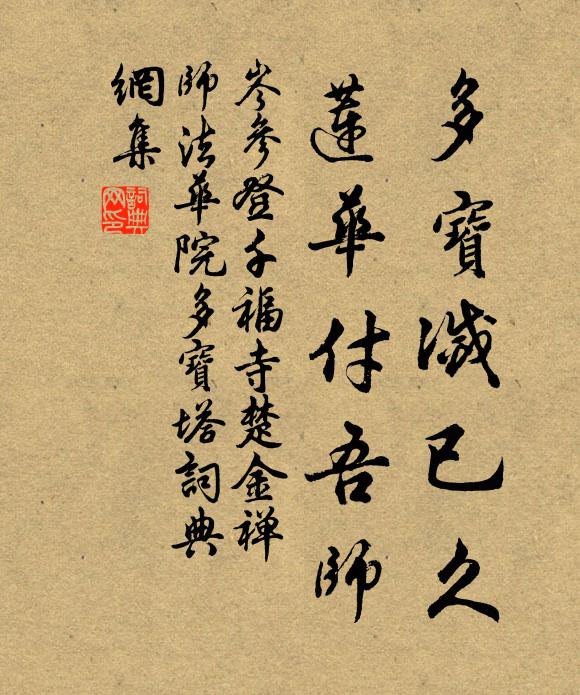 多寶滅已久
蓮華付吾師
岑參登千福寺楚金禅
師法華院多寶塔詞典
網集
詞典
网印